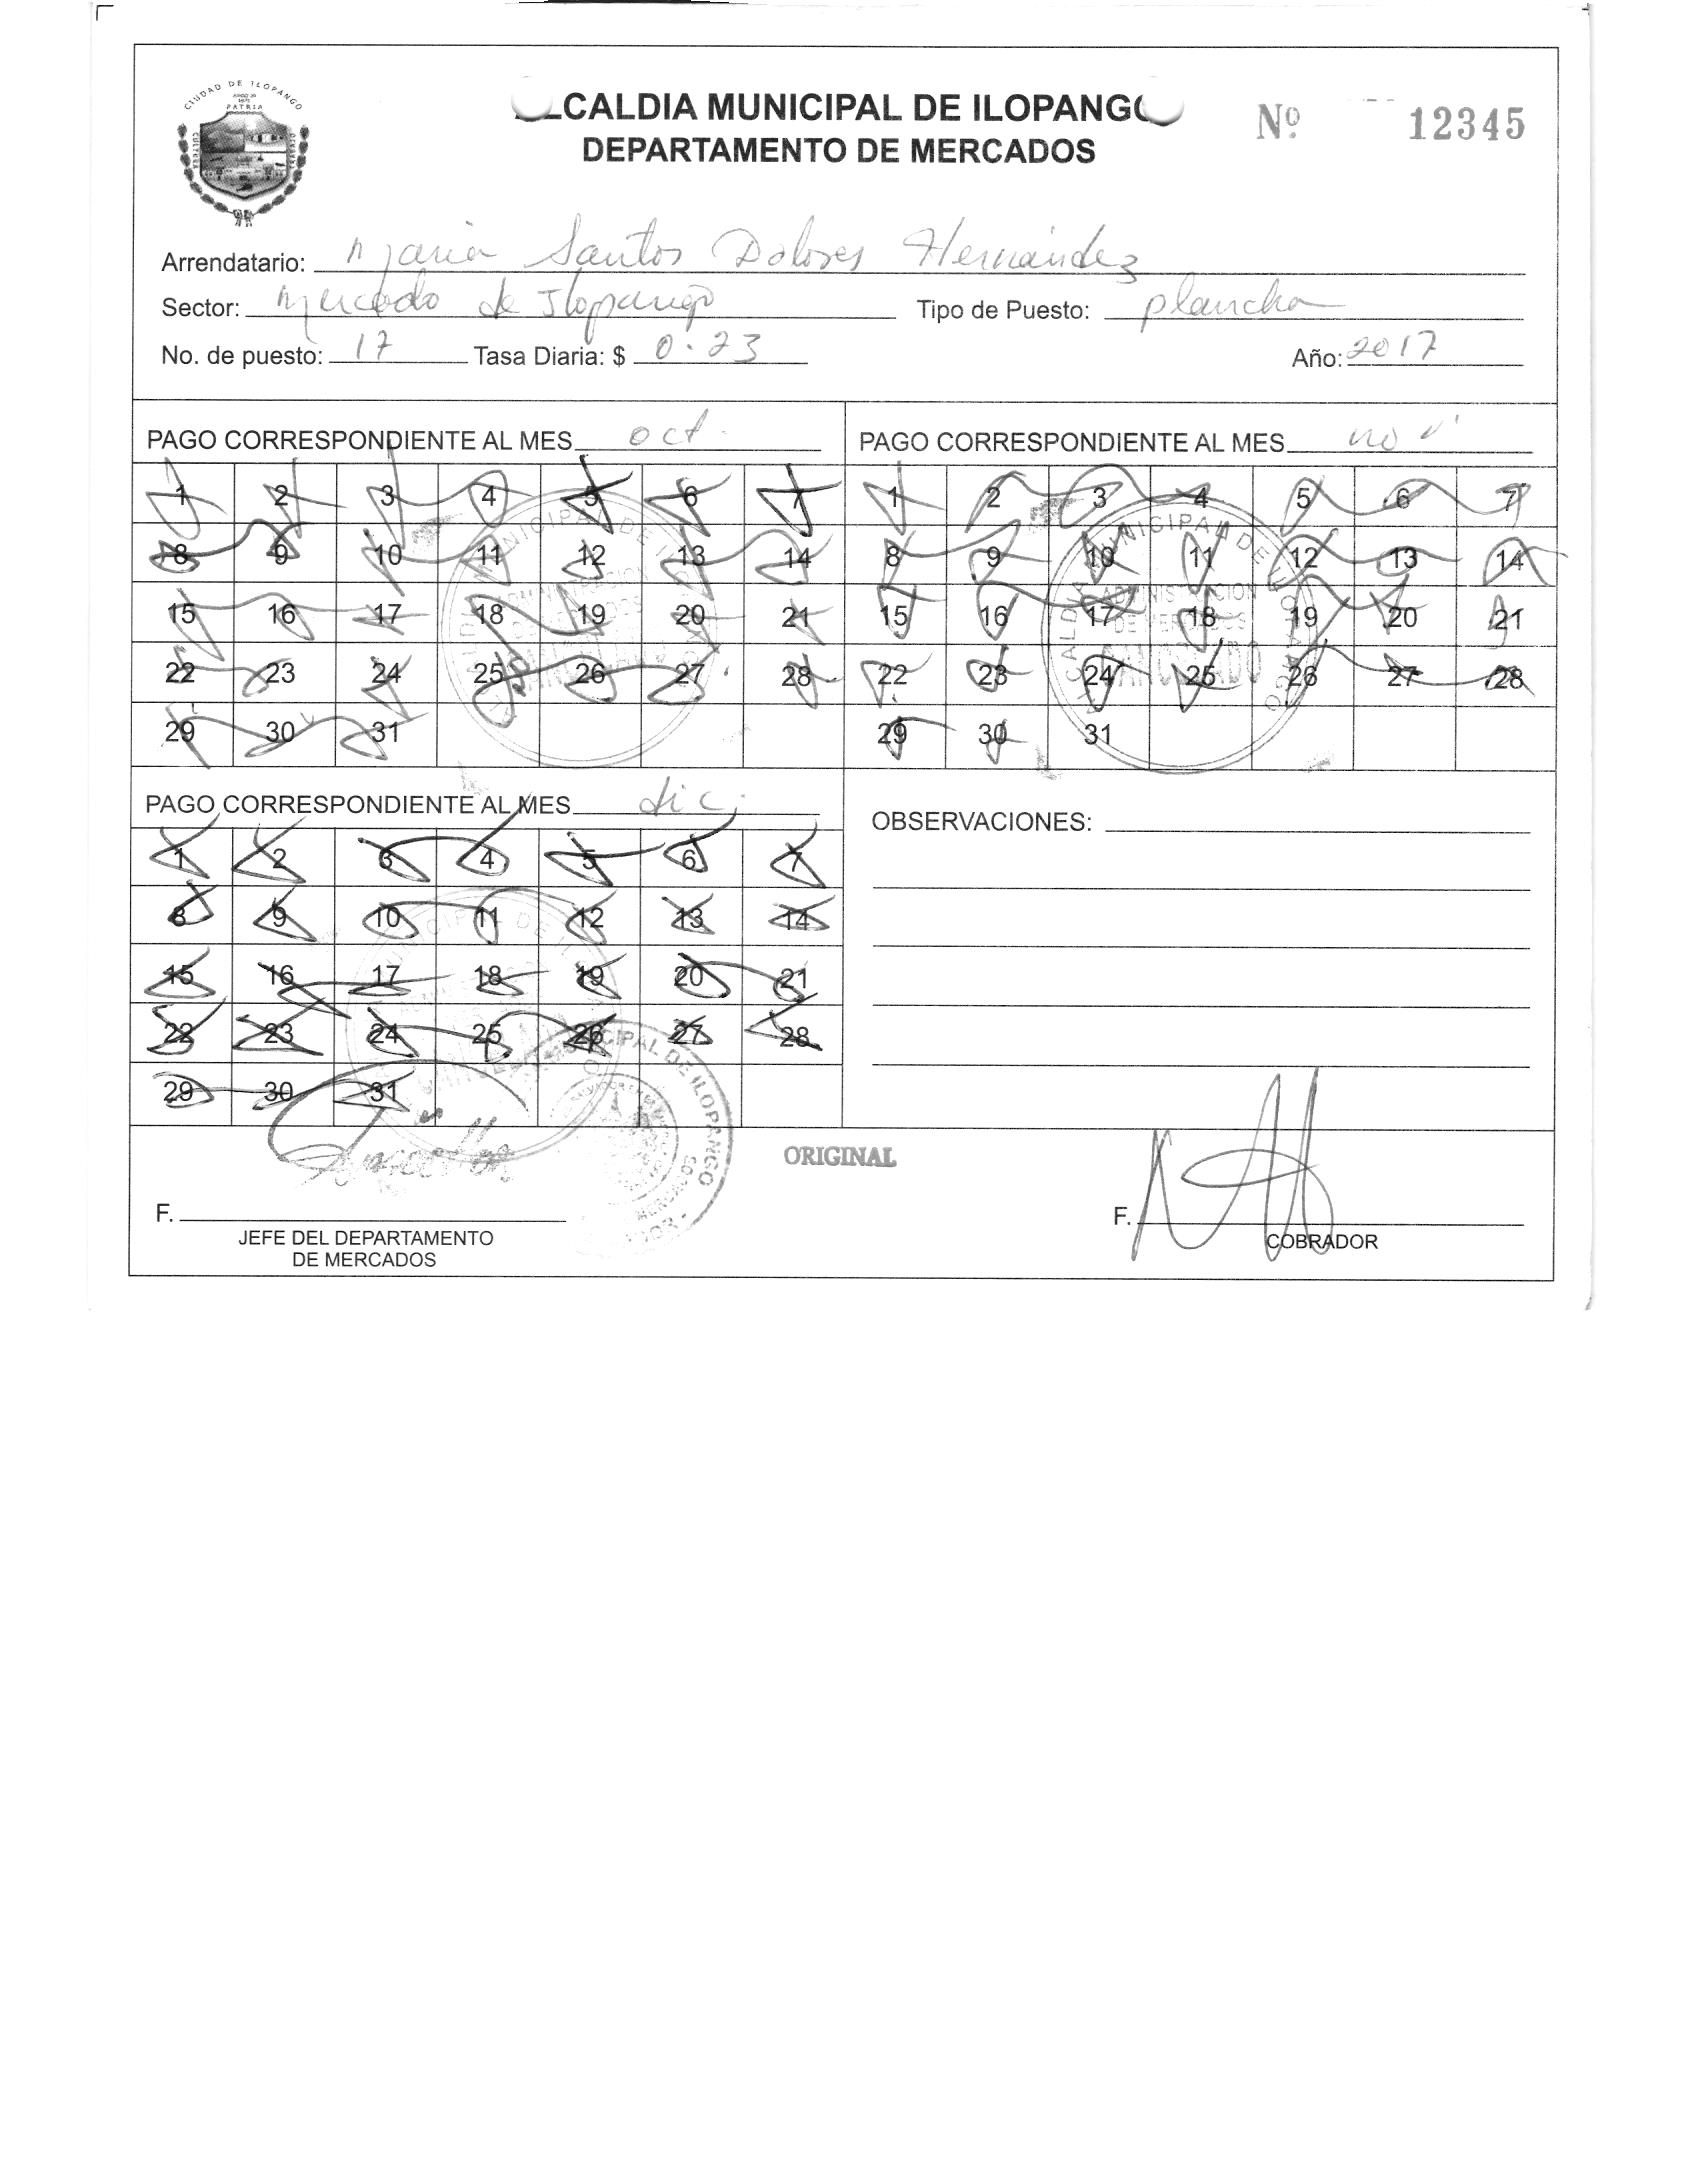 CIUDAD DE ILOPANGO
PATRIA
CULTURA
LCALDIA MUNICIPAL DE ILOPANGO
DEPARTAMENTO DE MERCADOS
Nº 12345
Arrendatario: Maria Santos Dolores Hernández
Sector: Mercado de Ilopango Tipo de Puesto: plancha
No. de puesto: 17 Tasa Diaria: $ 0.23 Año: 2017
PAGO CORRESPONDIENTE AL MES oct.
1 2 3 4 5 6 7
8 9 10 11 12 13 14
15 16 17 18 19 20 21
22 23 24 25 26 27 28
29 30 31
PAGO CORRESPONDIENTE AL MES nov
1 2 3 4 5 6 7
8 9 10 11 12 13 14
15 16 17 18 19 20 21
22 23 24 25 26 27 28
29 30 31
ALCALDIA MUNICIPAL DE ILOPANGO
ADMINISTRACION
DE MERCADOS
CANCELADO
PAGO CORRESPONDIENTE AL MES dic.
1 2 3 4 5 6 7
8 9 10 11 12 13 14
15 16 17 18 19 20 21
22 23 24 25 26 27 28
29 30 31
OBSERVACIONES:
MUNICIPAL DE ILOPANGO
ORIGINAL
F.
JEFE DEL DEPARTAMENTO
DE MERCADOS
F.
COBRADOR